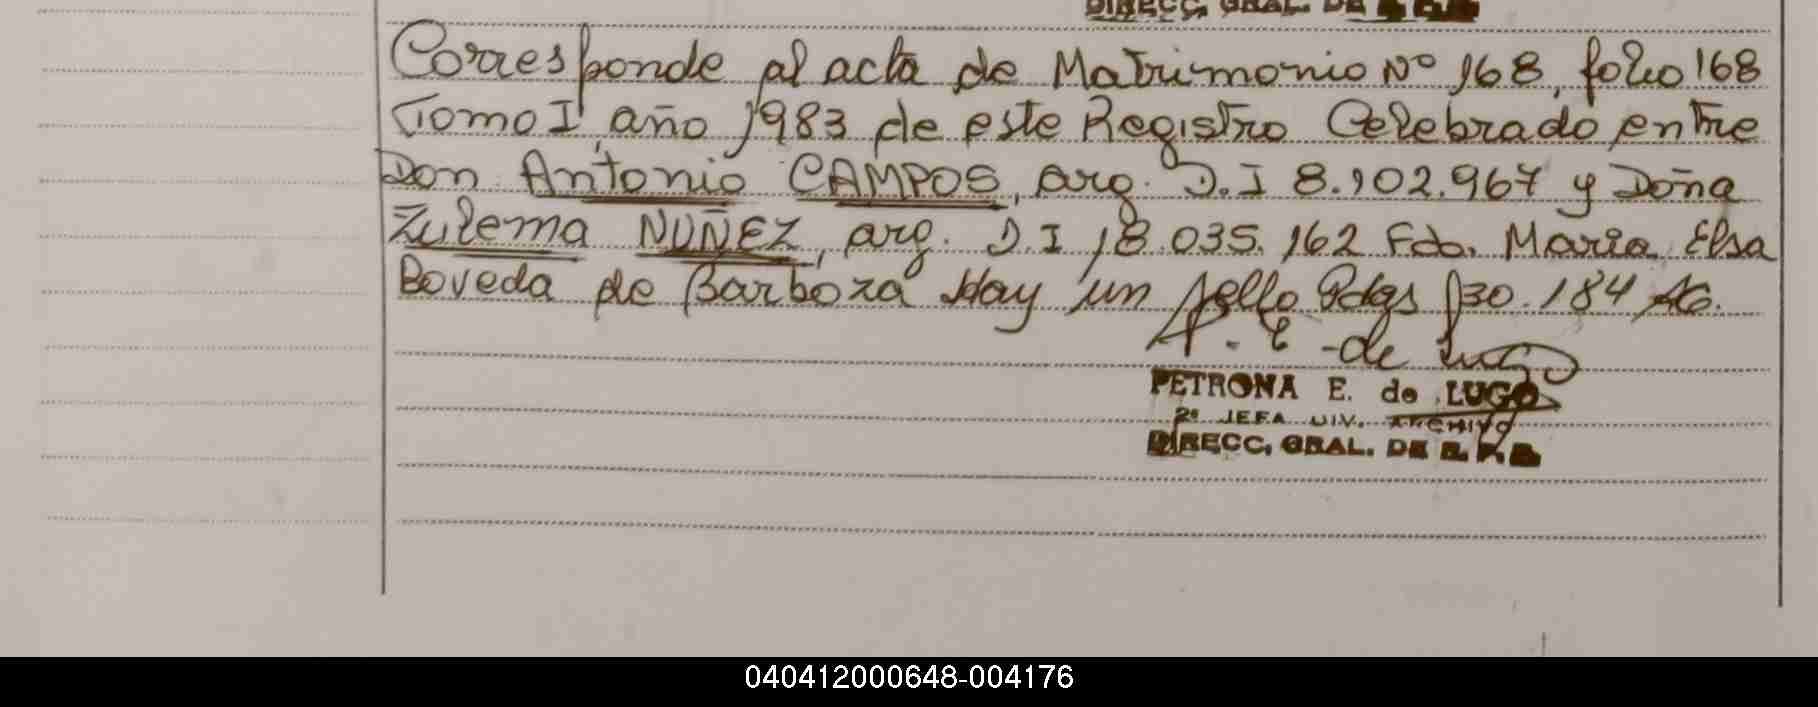 DIRECC. GRAL. DE
Corresponde al acta de Matrimonio Nº 168, folio 168
Tomo I, año 1983 de este Registro Celebrado entre
Don Antonio CAMPOS, arg. D.I 8.102.967 y Doña
Zulema NUÑEZ, arg. D.I 18.035.162 Fdo. Maria Elsa
Boveda de Barboza Hay un sello Rdgs 130.184
P. E de Lugo
PETRONA E. de LUGO
2º JEFA DIV. ARCHIVO
DIRECC. GRAL. DE R. P.
040412000648-004176